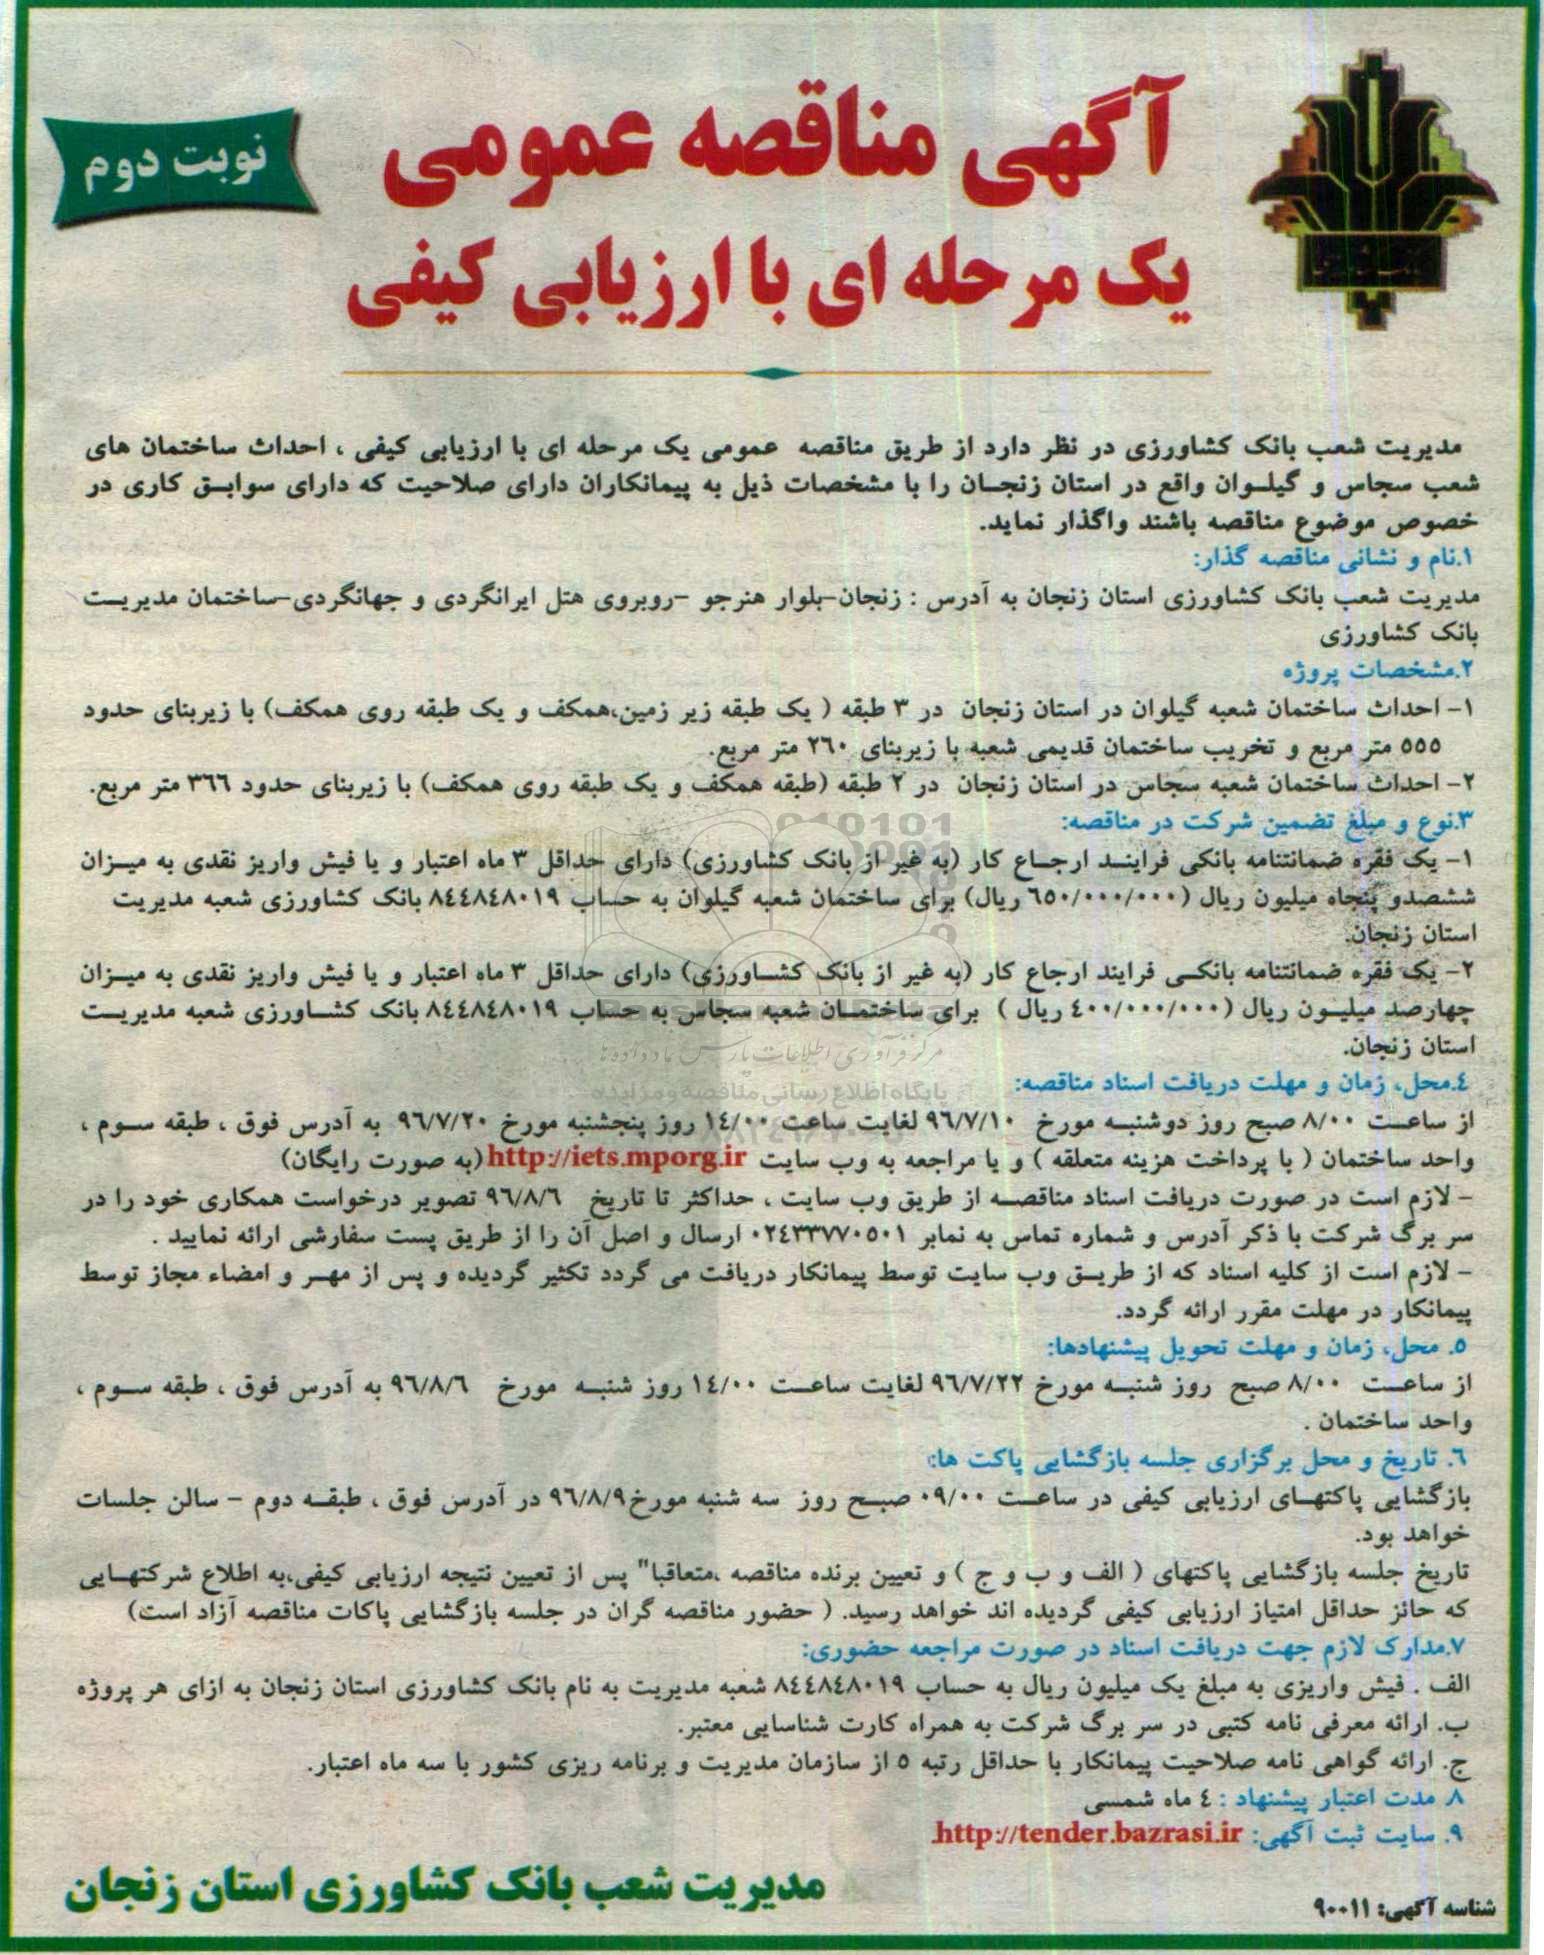 آگهی مناقصه عمومی
نوبت دوم
یک مرحله ای با ارزیابی کیفی
مدیریت شعب بانک کشاورزی در نظر دارد از طریق مناقصه عمومی یک مرحله ای با ارزیابی کیفی ، احداث ساختمان های
شعب سجاس و گیلوان واقع در استان زنجان را با مشخصات ذیل به پیمانکاران دارای صلاحیت که دارای سوابق کاری در
خصوص موضوع مناقصه باشند واگذار نماید.
۱.نام و نشانی مناقصه گذار:
مدیریت شعب بانک کشاورزی استان زنجان به آدرس : زنجان-بلوار هنرجو -روبروی هتل ایرانگردی و جهانگردی-ساختمان مدیریت
بانک کشاورزی
۲.مشخصات پروژه
۱- احداث ساختمان شعبه گیلوان در استان زنجان در ۳ طبقه ( یک طبقه زیر زمین،همکف و یک طبقه روی همکف) با زیربنای حدود
۵۵۵ متر مربع و تخریب ساختمان قدیمی شعبه با زیربنای ۲۶۰ متر مربع.
۲- احداث ساختمان شعبه سجاس در استان زنجان در ۲ طبقه (طبقه همکف و یک طبقه روی همکف) با زیربنای حدود ۳۶۶ متر مربع.
۳.نوع و مبلغ تضمین شرکت در مناقصه:
۱- یک فقره ضمانتنامه بانکی فرایند ارجاع کار (به غیر از بانک کشاورزی) دارای حداقل ۳ ماه اعتبار و یا فیش واریز نقدی به میزان
ششصدو پنجاه میلیون ریال (۶۵۰/۰۰۰/۰۰۰ ریال) برای ساختمان شعبه گیلوان به حساب ۸۴۴۸۴۸۰۱۹ بانک کشاورزی شعبه مدیریت
استان زنجان.
۲- یک فقره ضمانتنامه بانکی فرایند ارجاع کار (به غیر از بانک کشاورزی) دارای حداقل ۳ ماه اعتبار و یا فیش واریز نقدی به میزان
چهارصد میلیون ریال (۴۰۰/۰۰۰/۰۰۰ ریال ) برای ساختمان شعبه سجاس به حساب ۸۴۴۸۴۸۰۱۹ بانک کشاورزی شعبه مدیریت
استان زنجان.
مرکز فرآوری اطلاعات پارس نماد داده ها
پایگاه اطلاع رسانی مناقصه و مزایده
۴.محل، زمان و مهلت دریافت اسناد مناقصه:
از ساعت ۸/۰۰ صبح روز دوشنبه مورخ ۹۶/۷/۱۰ لغایت ساعت ۱۴/۰۰ روز پنجشنبه مورخ ۹۶/۷/۲۰ به آدرس فوق ، طبقه سوم ،
واحد ساختمان ( با پرداخت هزینه متعلقه ) و یا مراجعه به وب سایت http://iets.mporg.ir (به صورت رایگان)
- لازم است در صورت دریافت اسناد مناقصه از طریق وب سایت ، حداکثر تا تاریخ ۹۶/۸/۶ تصویر درخواست همکاری خود را در
سر برگ شرکت با ذکر آدرس و شماره تماس به نمابر ۰۲۴۳۳۷۷۰۵۰۱ ارسال و اصل آن را از طریق پست سفارشی ارائه نمایید .
- لازم است از کلیه اسناد که از طریق وب سایت توسط پیمانکار دریافت می گردد تکثیر گردیده و پس از مهر و امضاء مجاز توسط
پیمانکار در مهلت مقرر ارائه گردد.
۵. محل، زمان و مهلت تحویل پیشنهادها:
از ساعت ۸/۰۰ صبح روز شنبه مورخ ۹۶/۷/۲۲ لغایت ساعت ۱۴/۰۰ روز شنبه مورخ ۹۶/۸/۶ به آدرس فوق ، طبقه سوم ،
واحد ساختمان .
۶. تاریخ و محل برگزاری جلسه بازگشایی پاکت ها:
بازگشایی پاکتهای ارزیابی کیفی در ساعت ۰۹/۰۰ صبح روز سه شنبه مورخ۹۶/۸/۹ در آدرس فوق ، طبقه دوم - سالن جلسات
خواهد بود.
تاریخ جلسه بازگشایی پاکتهای ( الف و ب و ج ) و تعیین برنده مناقصه ،متعاقبا" پس از تعیین نتیجه ارزیابی کیفی،به اطلاع شرکتهایی
که حائز حداقل امتیاز ارزیابی کیفی گردیده اند خواهد رسید. ( حضور مناقصه گران در جلسه بازگشایی پاکات مناقصه آزاد است)
۷.مدارک لازم جهت دریافت اسناد در صورت مراجعه حضوری:
الف . فیش واریزی به مبلغ یک میلیون ریال به حساب ۸۴۴۸۴۸۰۱۹ شعبه مدیریت به نام بانک کشاورزی استان زنجان به ازای هر پروژه
ب. ارائه معرفی نامه کتبی در سر برگ شرکت به همراه کارت شناسایی معتبر.
ج. ارائه گواهی نامه صلاحیت پیمانکار با حداقل رتبه ۵ از سازمان مدیریت و برنامه ریزی کشور با سه ماه اعتبار.
۸. مدت اعتبار پیشنهاد : ۴ ماه شمسی
۹. سایت ثبت آگهی: http://tender.bazrasi.ir.
مدیریت شعب بانک کشاورزی استان زنجان
شناسه آگهی: ۹۰۰۱۱